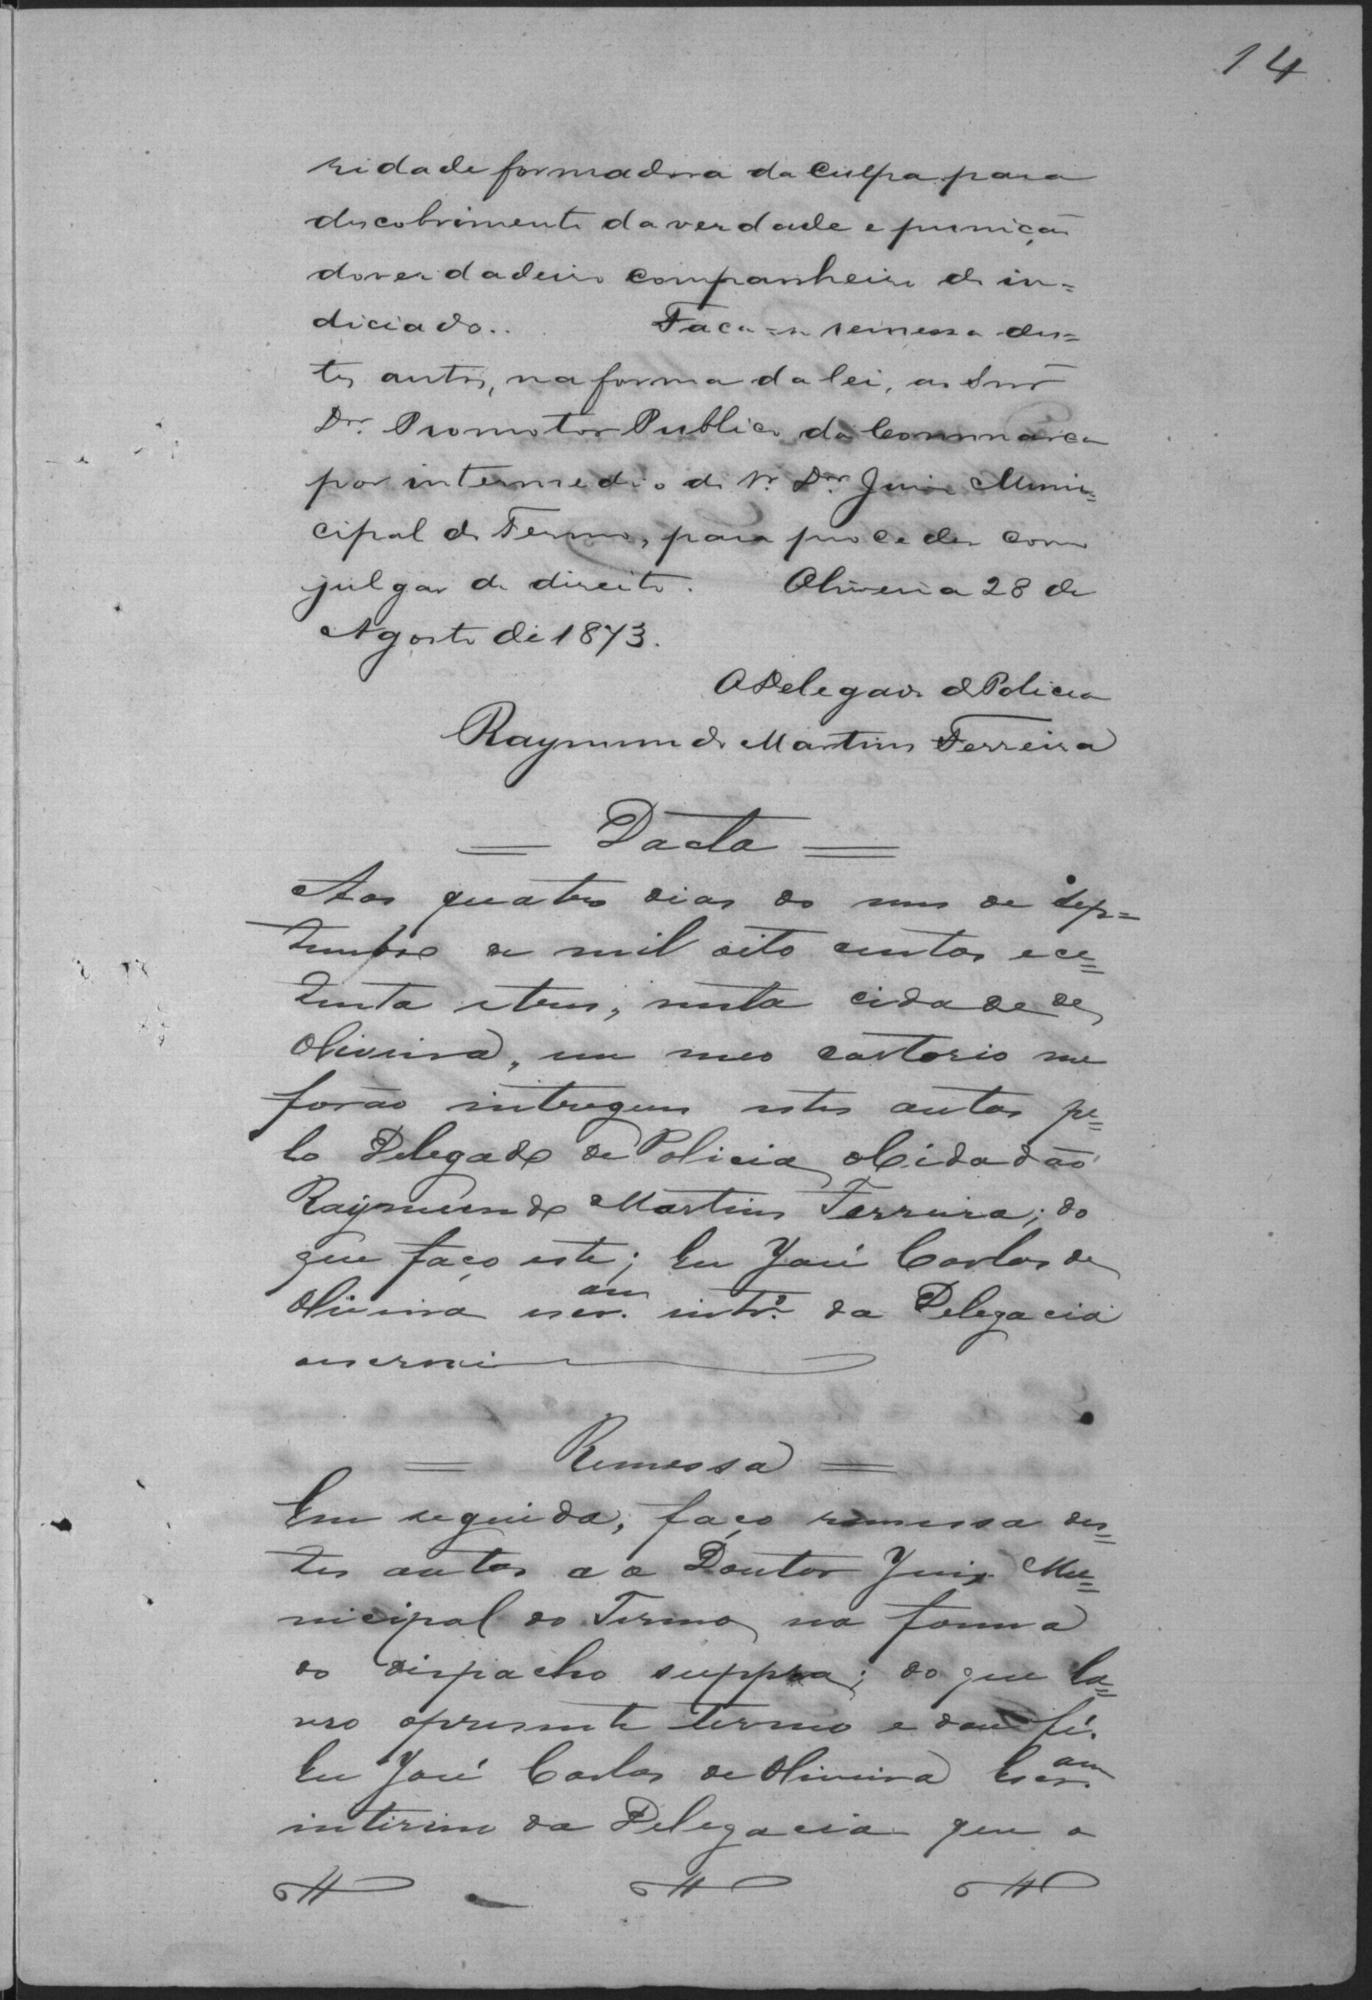 14
ridade formadora da culpa para
descobrimento da verdade e punição
do verdadeiro companheiro do in=
diciado.. Faca-se remessa des=
tes autos, na forma da lei, ao Snr̃
Dr. Promotor Publico da Commarca
por intermedio do Sr. Dor. Juiz Muni=
cipal do Termo, para proceder como
julgar de direito. Oliveira 28 de
Agosto de 1873.
O Delegado de Policia
Raymundo Martins Ferreira
= Dacta =
Aos quatro dias do mes de sep=
tembro de mil oito centos e ce=
tenta e tres, nesta cidade de
Oliveira, em meo cartorio me
forão intregues estes autos pe=
lo Delegado de Policia, o Cidadão
Raymundo Martins Ferreira; do
que faço este; Eu José Carlos de
Oliveira escr.am intro. da Delegacia
o escrevi
= Remessa =
Em seguida, faço remessa des=
tes autos a o Doutor Juiz Mu=
nicipal do Termo, na forma
do dispacho suppra; do que la=
vro o presente termo e dou fé.
Eu José Carlos de Oliveira Escr.am
interino da Delegacia que o